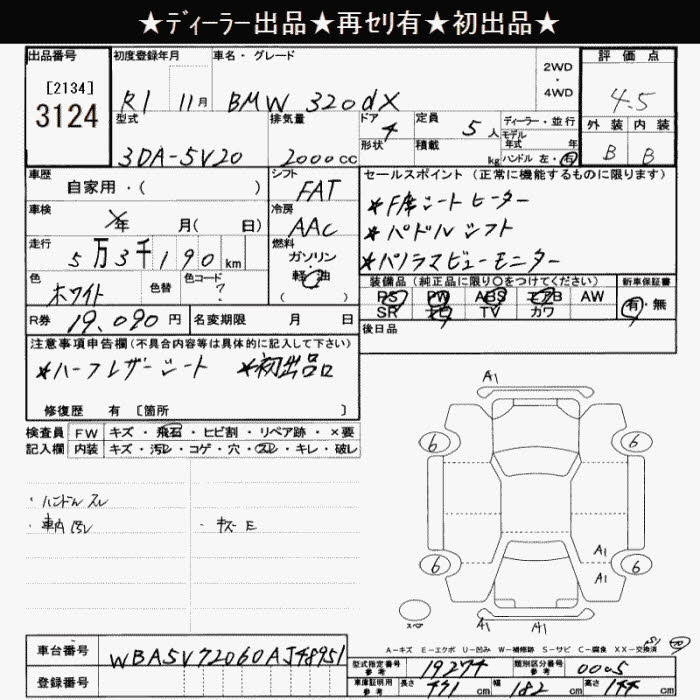 ★ディーラー出品★再セリ有★初出品★
出品番号 初度登録年月 車名・グレード 評価点
[2134]
3124
R1 11月 BMW 320dX 2WD・4WD 4.5
型式 排気量 ドア 定員 ディーラー・並行 外装 内装
3DA-5V20 2000cc 4 5人 モデル年式 年 B B
形状 積載 kg ハンドル 左・右
車歴 シフト セールスポイント(正常に機能するものに限ります)
自家用・( ) FAT ★F席シートヒーター
車検 年 月( 日) 冷房 AAC ★パドルシフト
走行 5万3千190km 燃料 ガソリン 軽油 ( ) ★パノラマビューモニター
色 ホワイト 色替 色コード ?
装備品(純正品に限り○をつけてください) 新車保証書
PS PW ABS エアB AW 有・無
SR ナビ TV カワ
R券 19,090円 名変期限 月 日 後日品
注意事項申告欄(不具合内容等は具体的に記入して下さい)
★ハーフレザーシート ★初出品
修復歴 有 [箇所 ]
検査員 FW キズ・飛石・ヒビ割・リペア跡・×要
記入欄 内装 キズ・汚レ・コゲ・穴・スレ・キレ・破レ
・ハンドルスレ
・車内汚レ ・キズE
A1
6 6
6 A1 6
A1
スペア A1 A1
A-キズ E-エクボ U-凹み W-補修跡 S-サビ C-腐食 XX-交換済
車台番号 WBA5V72060AJ48951
型式指定番号 参考 19274 類別区分番号 参考 0005
登録番号 車庫証明用 参考 長さ 471cm 幅 182cm 高さ 144cm